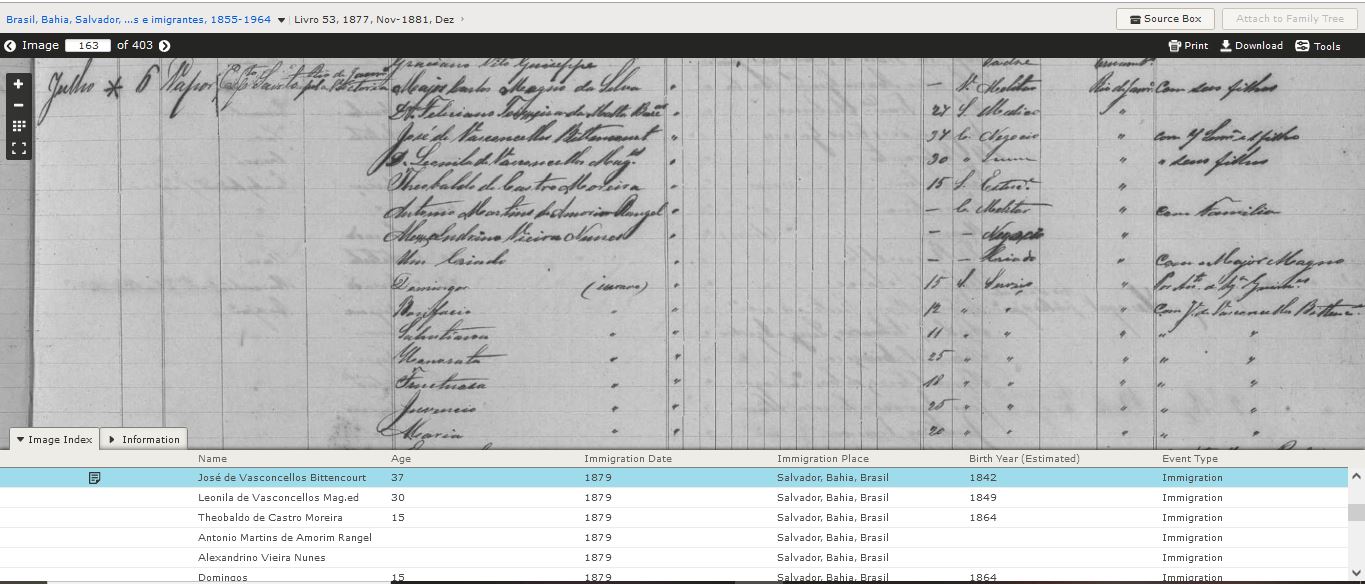 Brasil, Bahia, Salvador, ...s e imigrantes, 1855-1964 ▼ Livro 53, 1877, Nov-1881, Dez ›
Source Box Attach to Family Tree
Image 163 of 403 Print Download Tools
Graciano Vito Guiseppe
Julho * 6 Vapor Major Carlos Magno da Silva " — V. Melitar Rio de Janrº Com dous filhos
Dr. Feliciano " 27 S. Medico "
José de Vasconcellos Bittencourt " 37 C. Negocio " com
D. Leonila de Vasconcellos Mag.ed " 30 " " " dous filhos
Theobaldo de Castro Moreira " 15 S. Estude "
Antonio Martins de Amorim Rangel " — C. Melitar " Com Familia
Alexandrino Vieira Nunes " — — Negocio "
Um Criado " — — Criado " Com o Major Magno
Domingos (escravo) " 15 S. Serviço "
Bonifacio " " 12 " " " Com Jº de Vasconcellos Bittencº
Salustiana " " 11 " " " " "
" " 25 " " " " "
Fructuosa " " 18 " " " " "
Juvencio " " 25 " " " " "
Maria " " 20 " " " " "
Image Index Information
Name Age Immigration Date Immigration Place Birth Year (Estimated) Event Type
José de Vasconcellos Bittencourt 37 1879 Salvador, Bahia, Brasil 1842 Immigration
Leonila de Vasconcellos Mag.ed 30 1879 Salvador, Bahia, Brasil 1849 Immigration
Theobaldo de Castro Moreira 15 1879 Salvador, Bahia, Brasil 1864 Immigration
Antonio Martins de Amorim Rangel 1879 Salvador, Bahia, Brasil Immigration
Alexandrino Vieira Nunes 1879 Salvador, Bahia, Brasil Immigration
Domingos 15 1879 Salvador, Bahia, Brasil 1864 Immigration